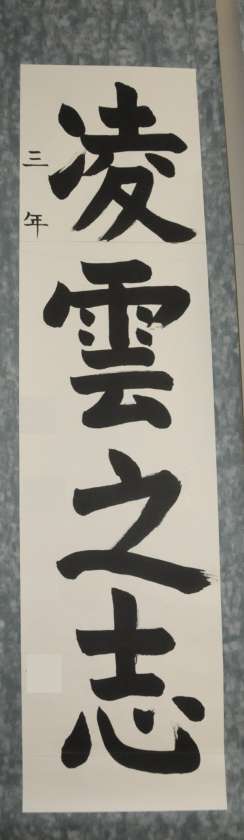 凌雲之志
三年